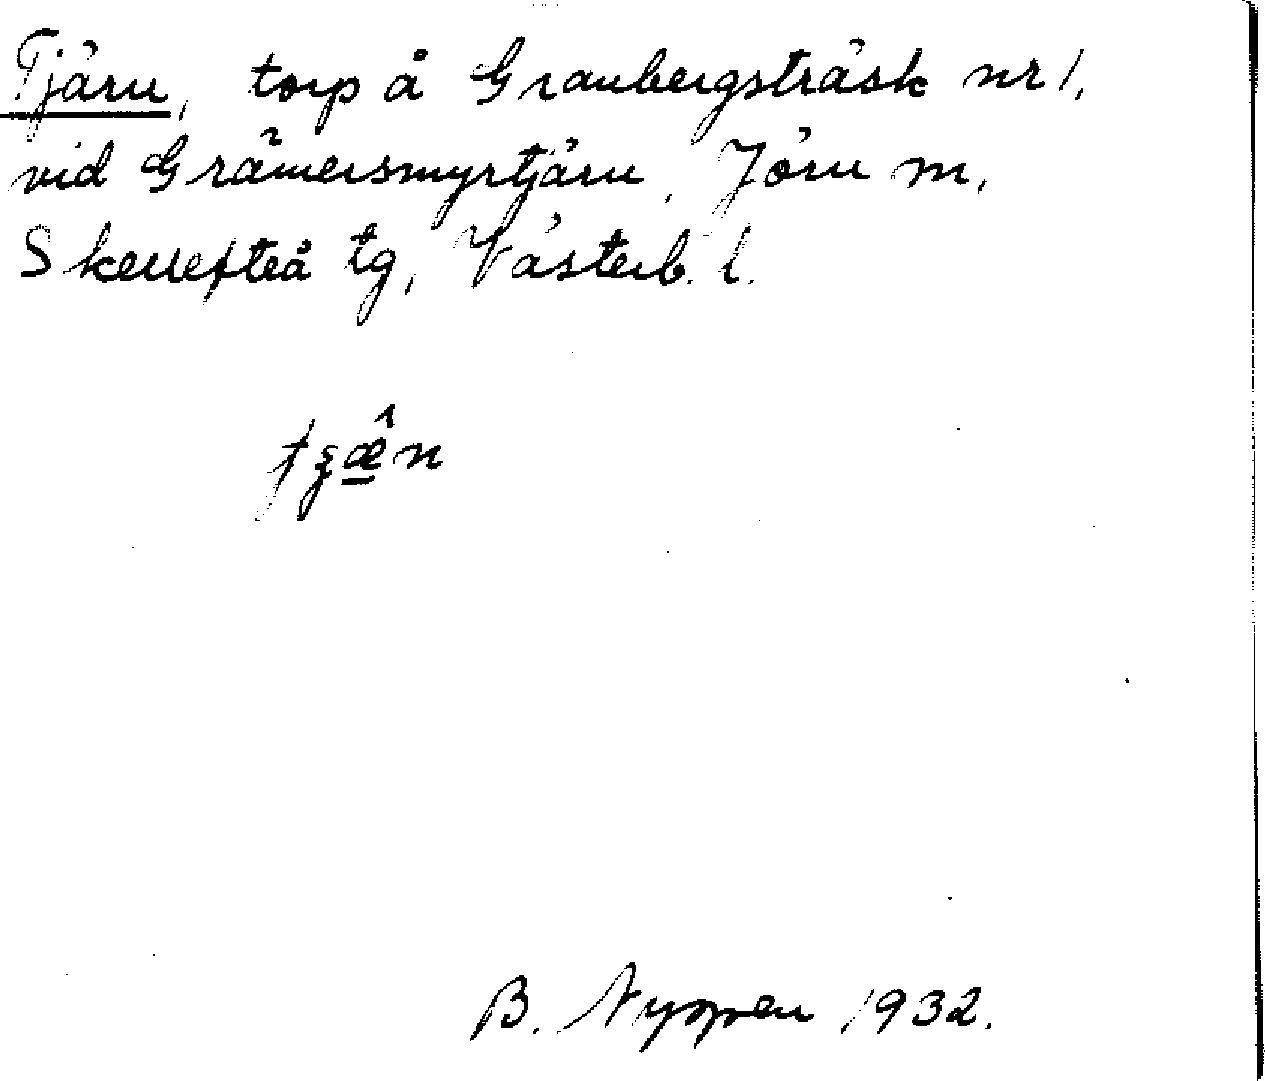 Tjärn, torp å Granbergsträsk nr 1,
vid Grämersmyrtjärn, Jörn m,
Skellefteå tg, Västerb. l.
B. Nyppen 1932.